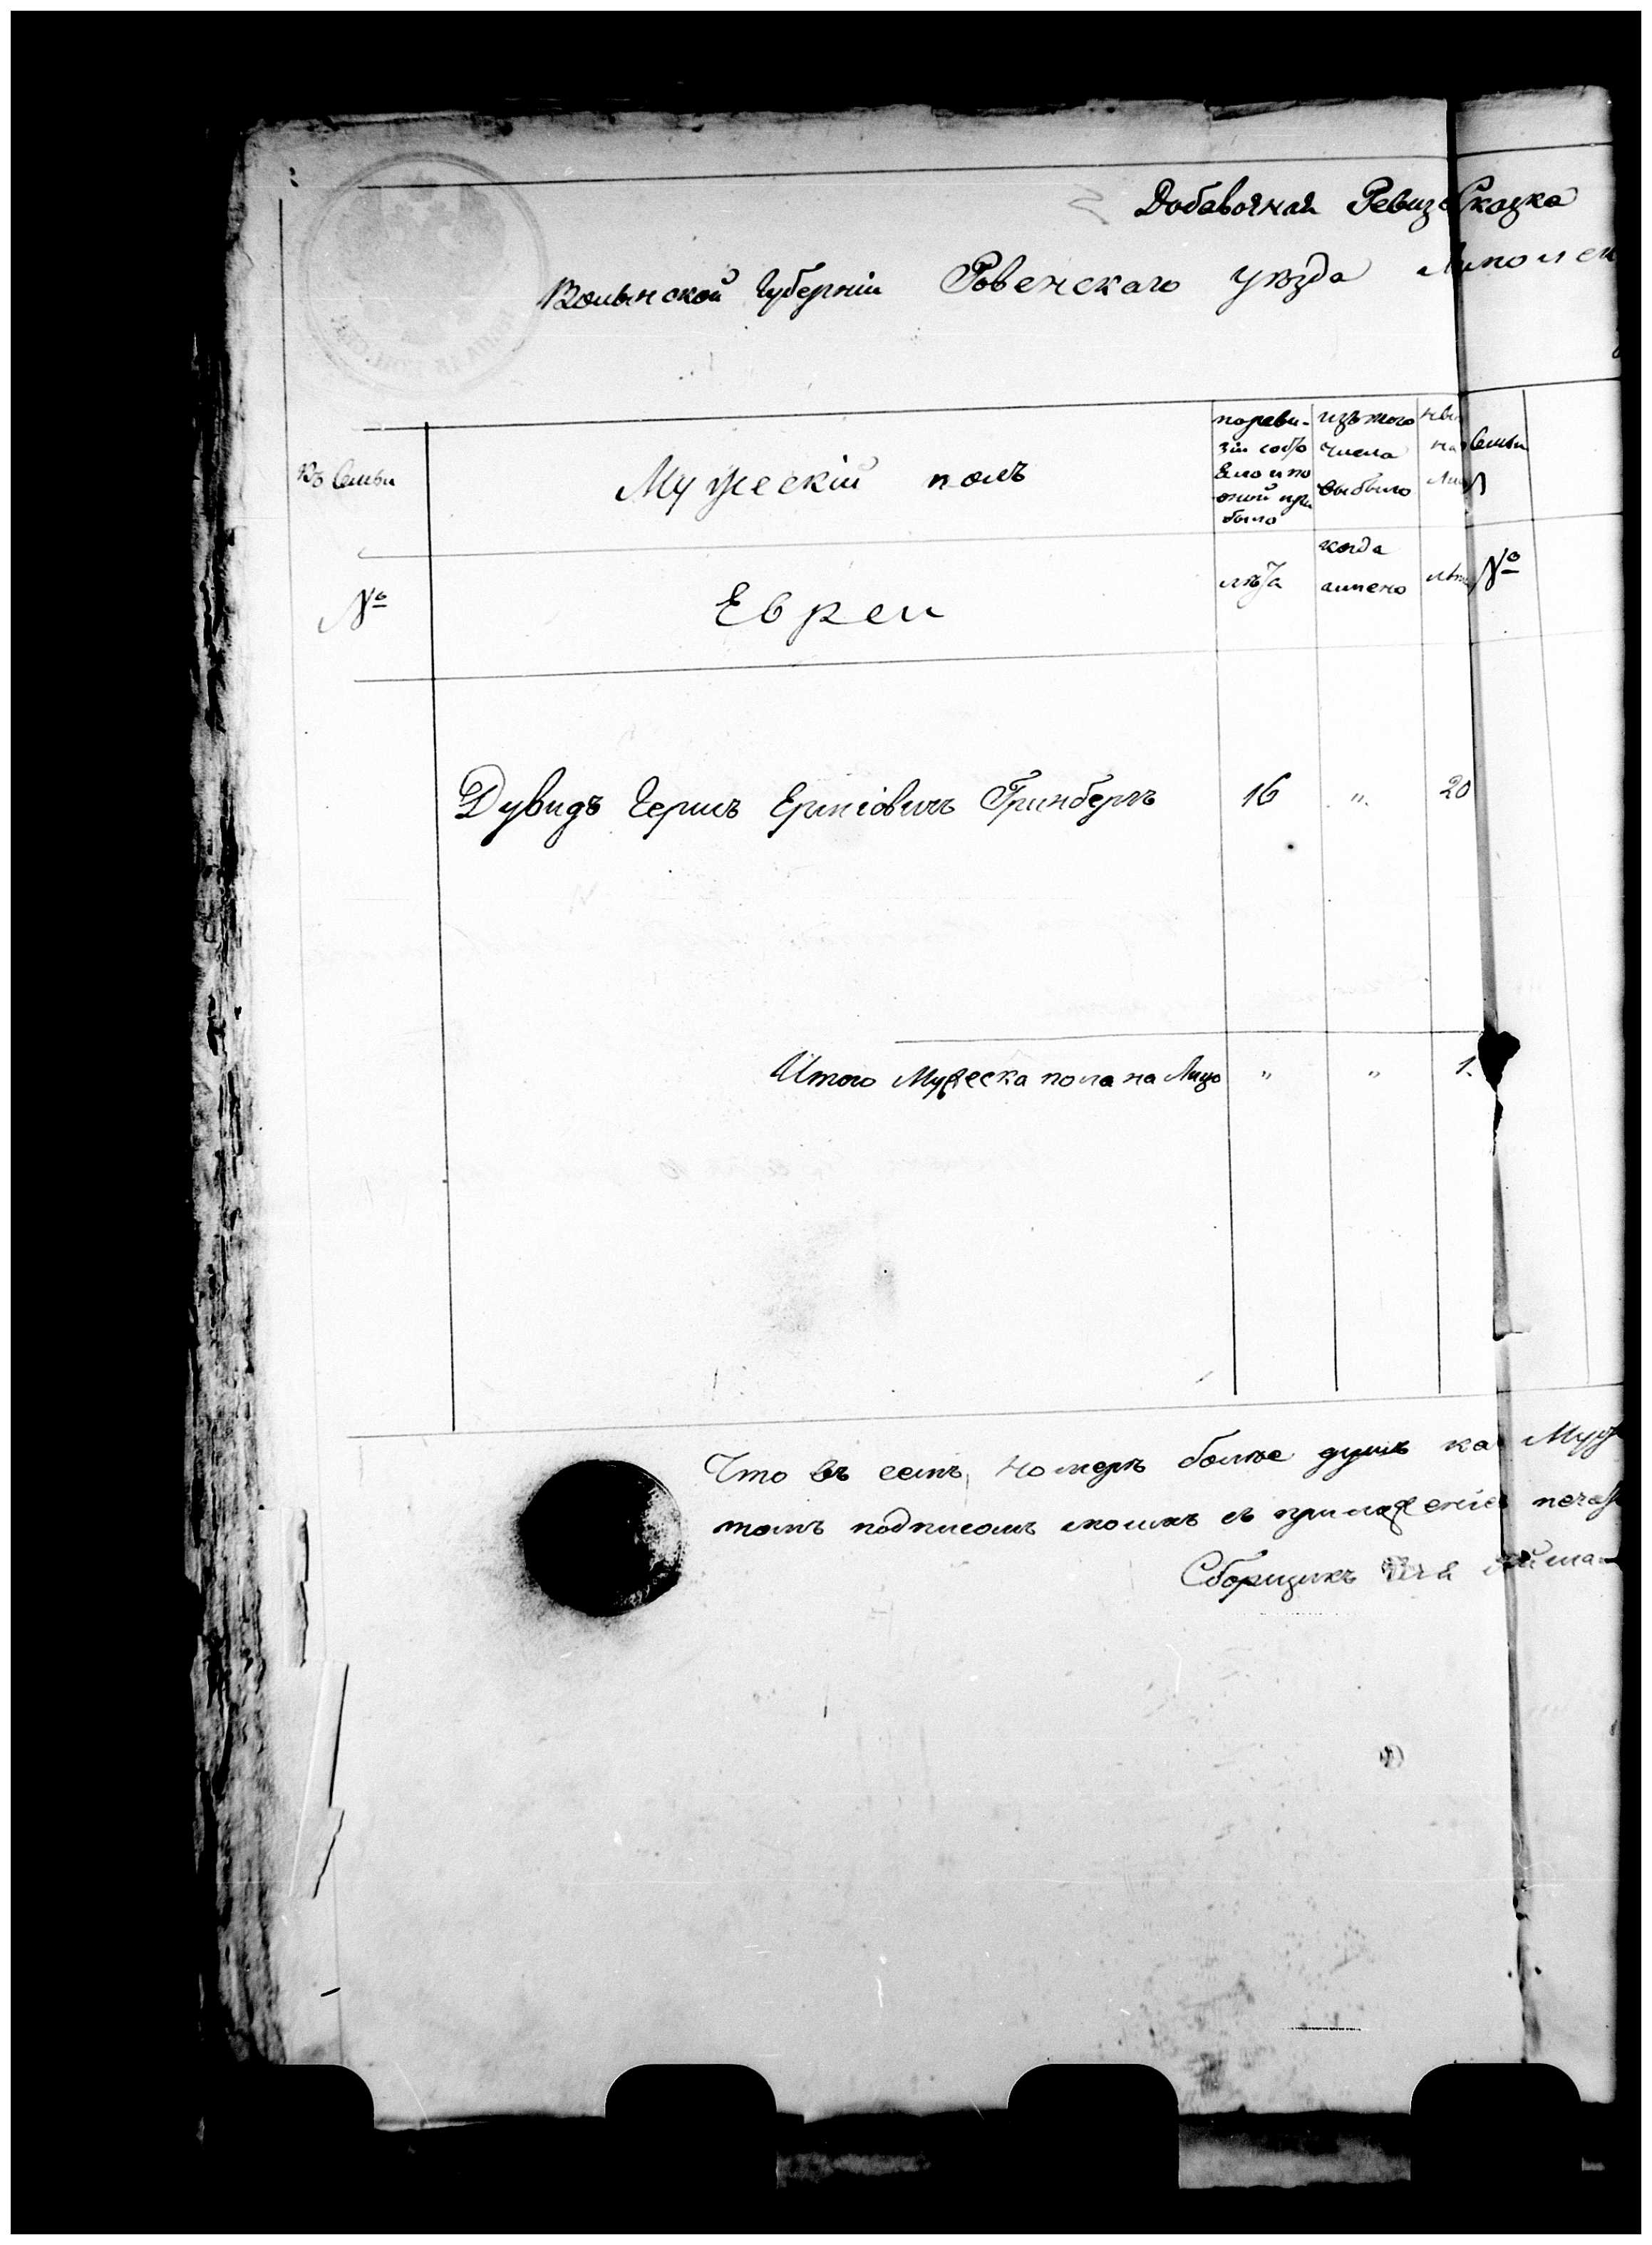 Добавочная Ревиз Сказка
Волынской Губерніи Ровенского уѣзда
Въ Семьи
Мужескій полъ
по реви-
зіи состо
яло и по
оной при
было
изъ того
числа
выбыло
Семьи
№
Евреи
лѣта
когда
имено
№
Дувидъ Гершъ Ериховичъ Гринбергъ 16 " 20
Итого Мужеска пола на Лицо " " 1.
Что въ семъ номерѣ болѣе душъ ка Муж
томъ подписомъ моимъ съ приложеніемъ печат
Сборщикъ